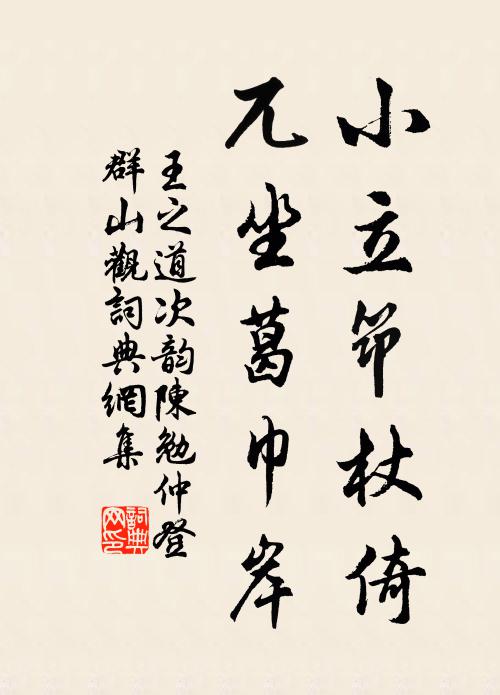 小立笻杖倚
兀坐葛巾岸
王之道次韵陳勉仲登
群山觀詞典網集
詞典网印